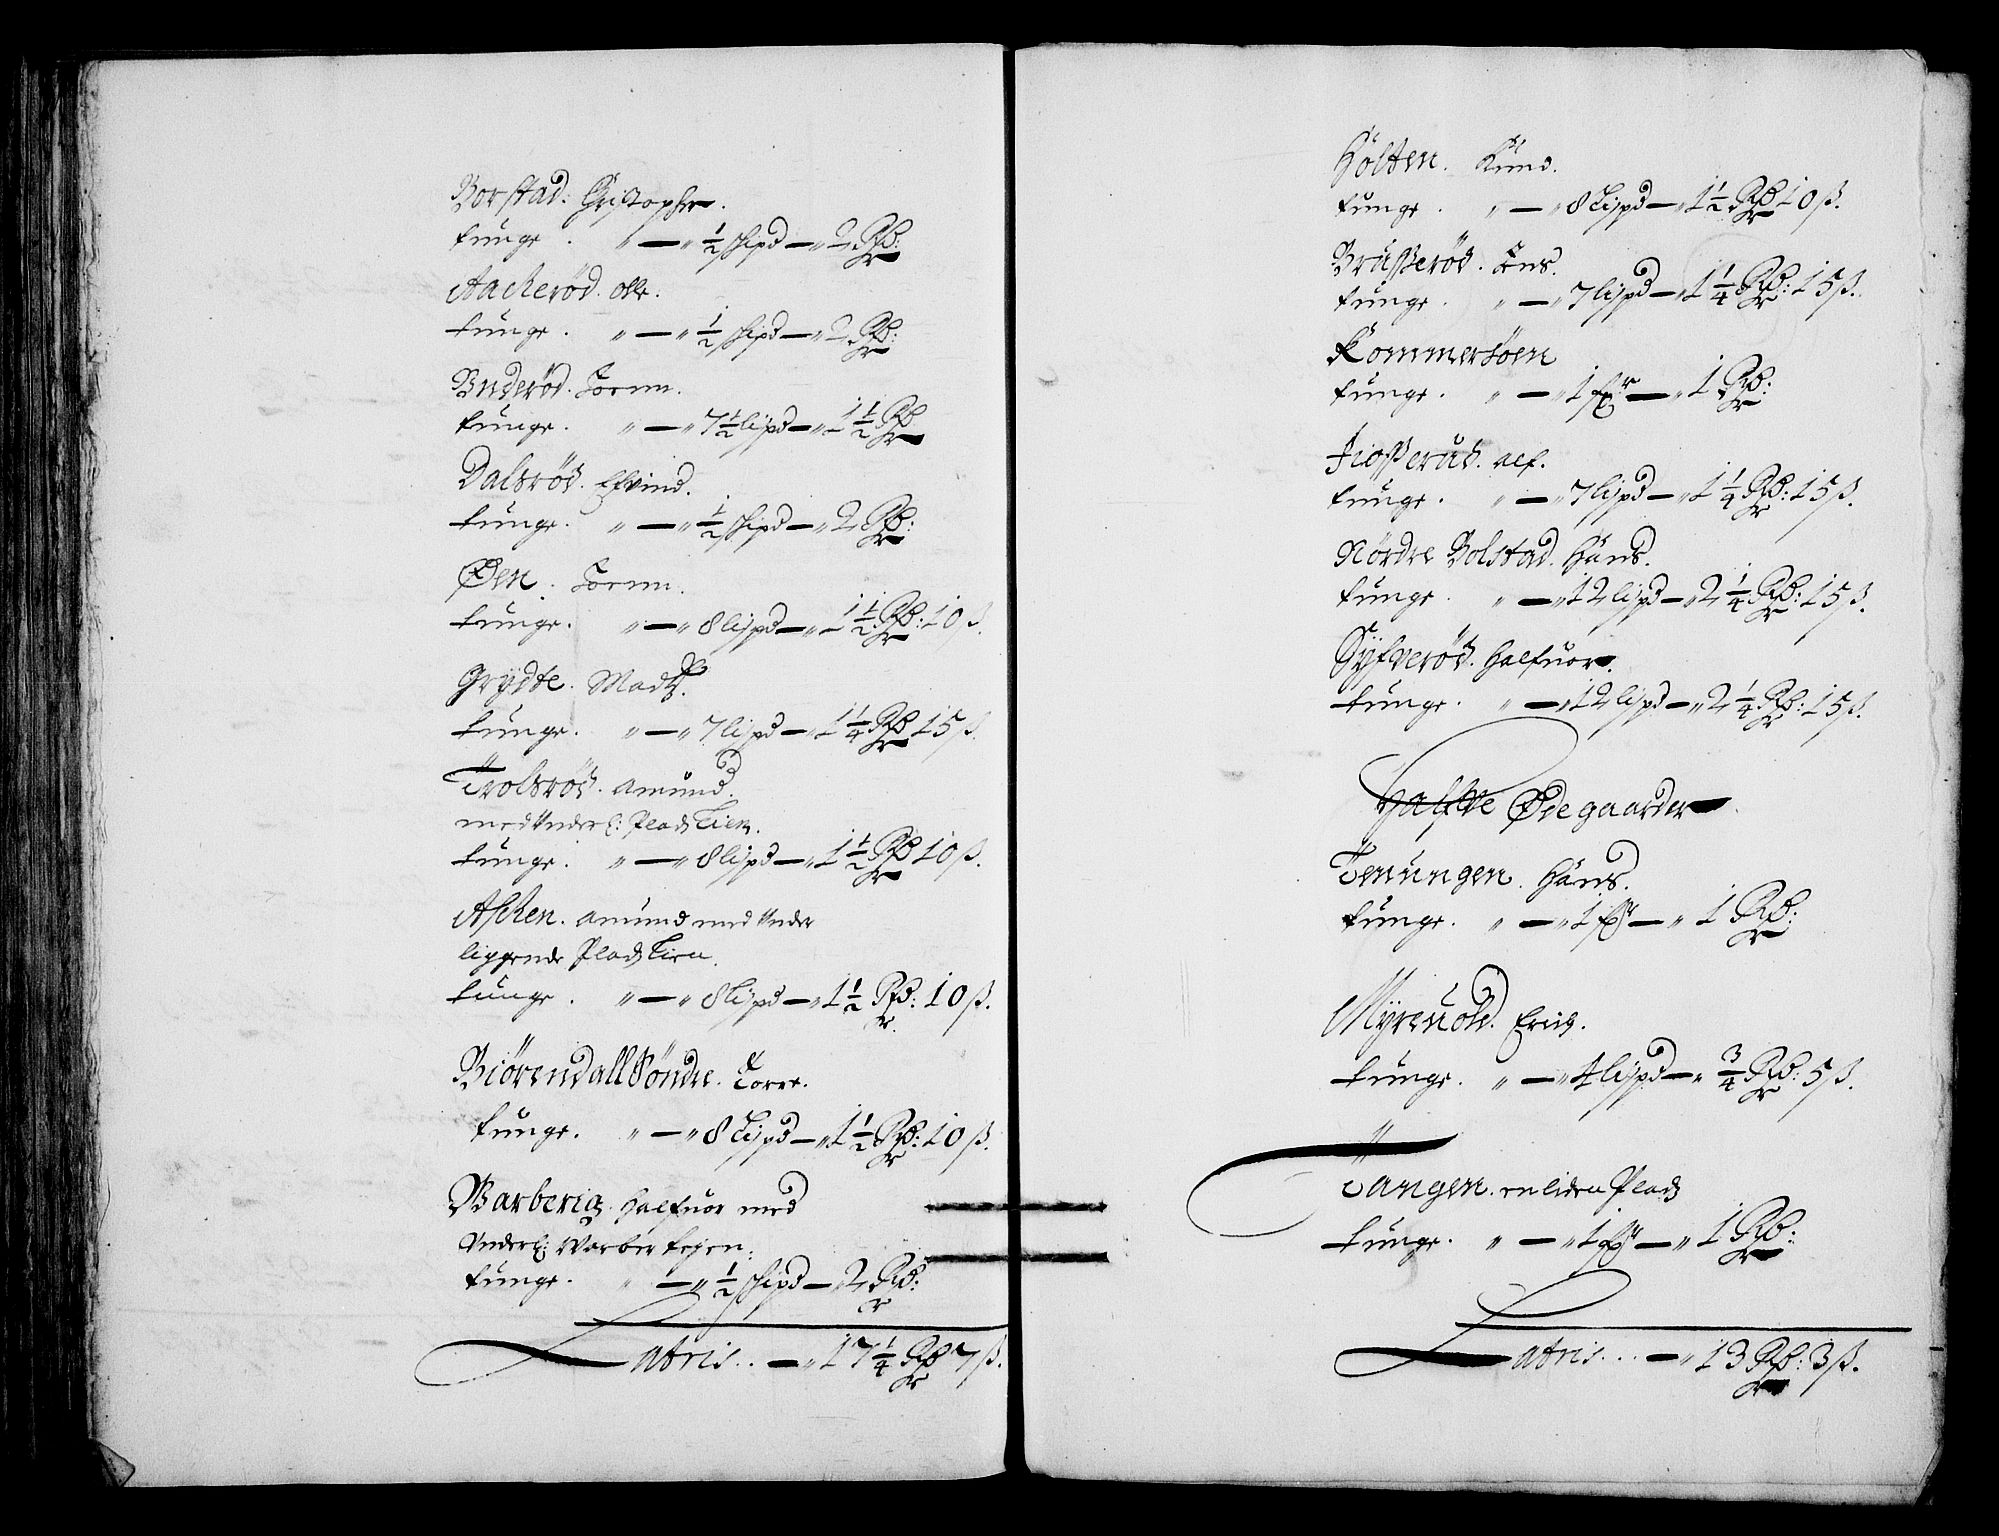 Borstad: Christopher.
tunge. " — " ½ skipd — " 2 Rd:
Aackerød. Olle.
tunge. " — " ½ skipd — " 2 Rd:
Vnderød. Torm.
tunge. " — " 7½ lispd — " 1½ Rd
Dalsrød. Efvind.
tunge. " — " ½ skipd — " 2 Rd:
Øen. Torm.
tunge. " — " 8 lispd — " 1½ Rd: 10 ß.
Grydte. Madtz.
tunge. " — " 7 lispd — " 1¼ Rd 15 ß.
Trolsrød. Amund.
med Vnderl: Pladz Lien.
tunge. " — " 8 lispd — " 1½ Rd 10 ß.
Asken. Amund med Vnder
liggende Pladz Lien.
tunge. " — " 8 Lispd — " 1½ Rd: 10 ß.
Biørendall Søndre. Torre.
tunge. " — " 8 Lispd — " 1½ Rd: 10 ß.
Warberig. Halfuor med
Vnderl: Warber
tunge. " — " ½ skipd — " 2 Rd:
Latris.. — " 17¼ Rd 7 ß.
Holten. Knud.
tunge. " — " 8 Lispd — " 1½ Rd 10 ß.
Brußerød. Ens.
tunge. " — " 7 lispd — " 1¼ Rd: 15 ß.
Kommersøen
tunge. " — " 1 fr — " 1 Rd:
Fioßerud. Alf.
tunge. " — " 7 lispd — " 1¼ Rd: 15 ß.
Nordre Bolstad. Hans.
tunge. " — " 12 lispd — " 2¼ Rd: 15 ß.
Syfverød. Halfuor.
tunge. " — " 12 lispd — " 2¼ Rd: 15 ß.
Halfve Ødegaarder.
Tenungen. Hans.
tunge. " — " 1 fr — " 1 Rd:
Myreuold. Erich.
tunge. " — " 4 lispd — " ¾ Rd: 5 ß.
Tangen. en liden Pladz
tunge. " — " 1 fr — " 1 Rd:
Latris... — " 13 Rd: 3 ß.